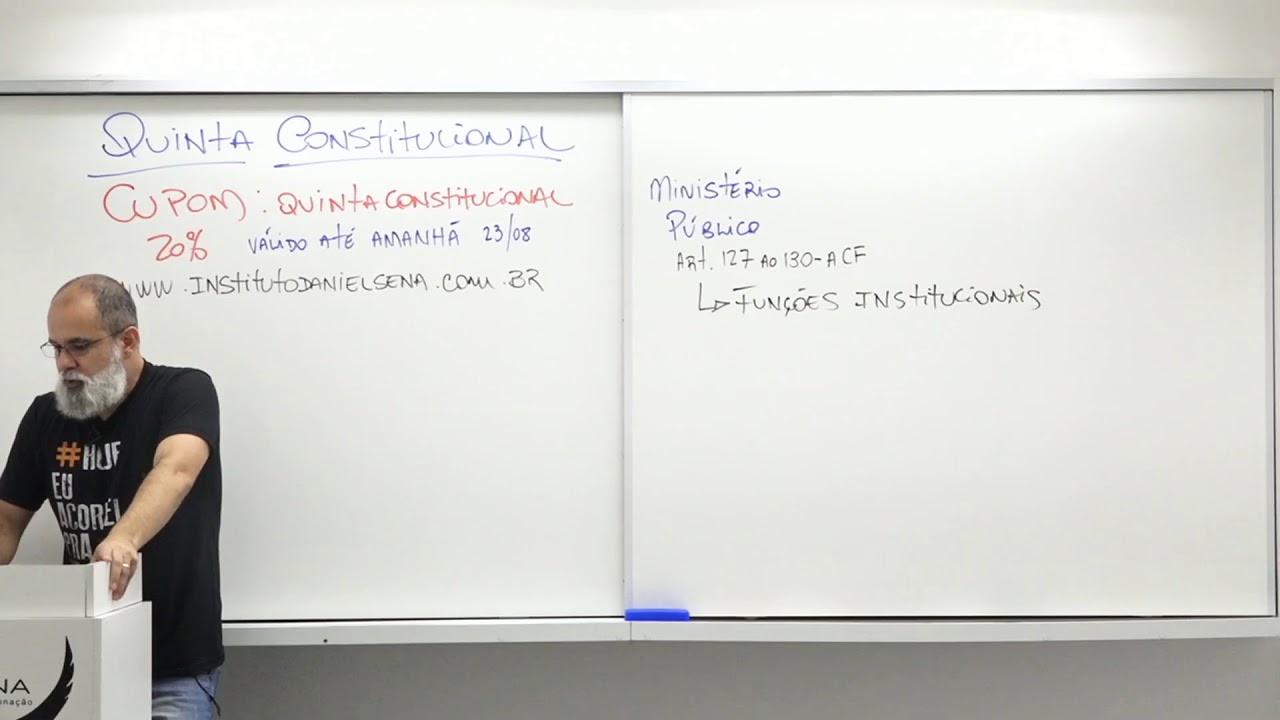 QUINTA CONSTITUCIONAL
CUPOM: QUINTACONSTITUCIONAL
20% VÁLIDO ATÉ AMANHÃ 23/08
WWW.INSTITUTODANIELSENA.COM.BR
MINISTÉRIO
PÚBLICO
ART. 127 AO 130-A CF
↳ FUNÇÕES INSTITUCIONAIS
#HOJE
EU
ACORDEI
PRA